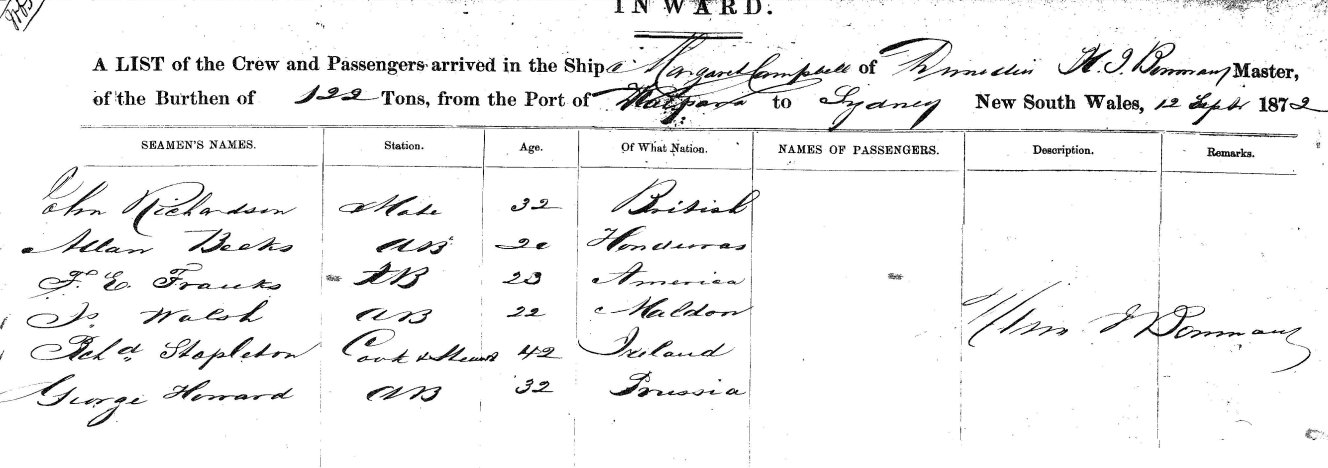 INWARD.
A LIST of the Crew and Passengers arrived in the Ship Margaret Campbell of Dunedin Master,
of the Burthen of 122 Tons, from the Port of to Sydney New South Wales, 12 Sept 1872
SEAMEN'S NAMES. Station. Age. Of What Nation. NAMES OF PASSENGERS. Description. Remarks.
John Richardson Mate 32 British
Allan Beeks AB Honduras
F. E. Franks AB 23 America
Js Walsh AB 22 Maldon
Richd Stapleton Cook & Steward 42 Ireland
George Howard AB 32 Prussia